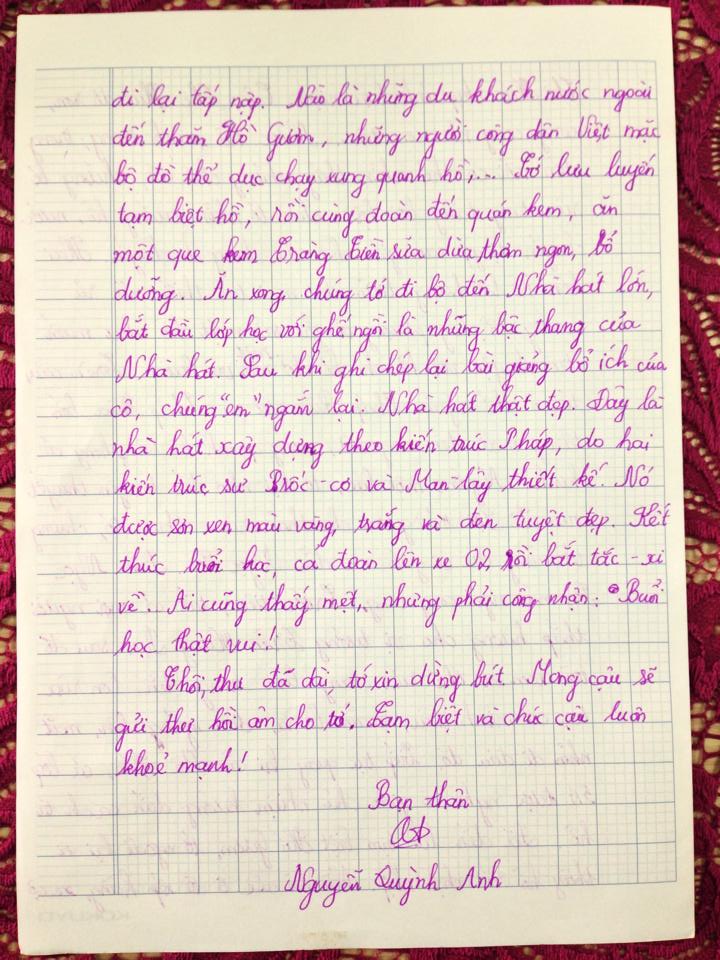 đi lại tấp nập. Nào là những du khách nước ngoài
đến thăm Hồ Gươm, những người công dân Việt mặc
bộ đồ thể dục chạy xung quanh hồ,... Tớ lưu luyến
tạm biệt hồ, rồi cùng đoàn đến quán kem, ăn
một que kem Tràng Tiền sữa dừa thơm ngon, bổ
dưỡng. Ăn xong, chúng tớ đi bộ đến Nhà hát lớn,
bắt đầu lớp học với ghế ngồi là những bậc thang của
Nhà hát. Sau khi ghi chép lại bài giảng bổ ích của
cô, chúng "em" ngắm lại. Nhà hát thật đẹp. Đây là
nhà hát xây dựng theo kiến trúc Pháp, do hai
kiến trúc sư Brốc-cơ và Man-lây thiết kế. Nó
được sơn xen màu vàng, trắng và đen tuyệt đẹp. Kết
thúc buổi học, cả đoàn lên xe 02, rồi bắt tắc-xi
về. Ai cũng thấy mệt, nhưng phải công nhận: Buổi
học thật vui!
Thôi, thư đã dài, tớ xin dừng bút. Mong cậu sẽ
gửi thư hồi âm cho tớ. Tạm biệt và chúc cậu luôn
khoẻ mạnh!
Bạn thân
QA
Nguyễn Quỳnh Anh
KOKUYO